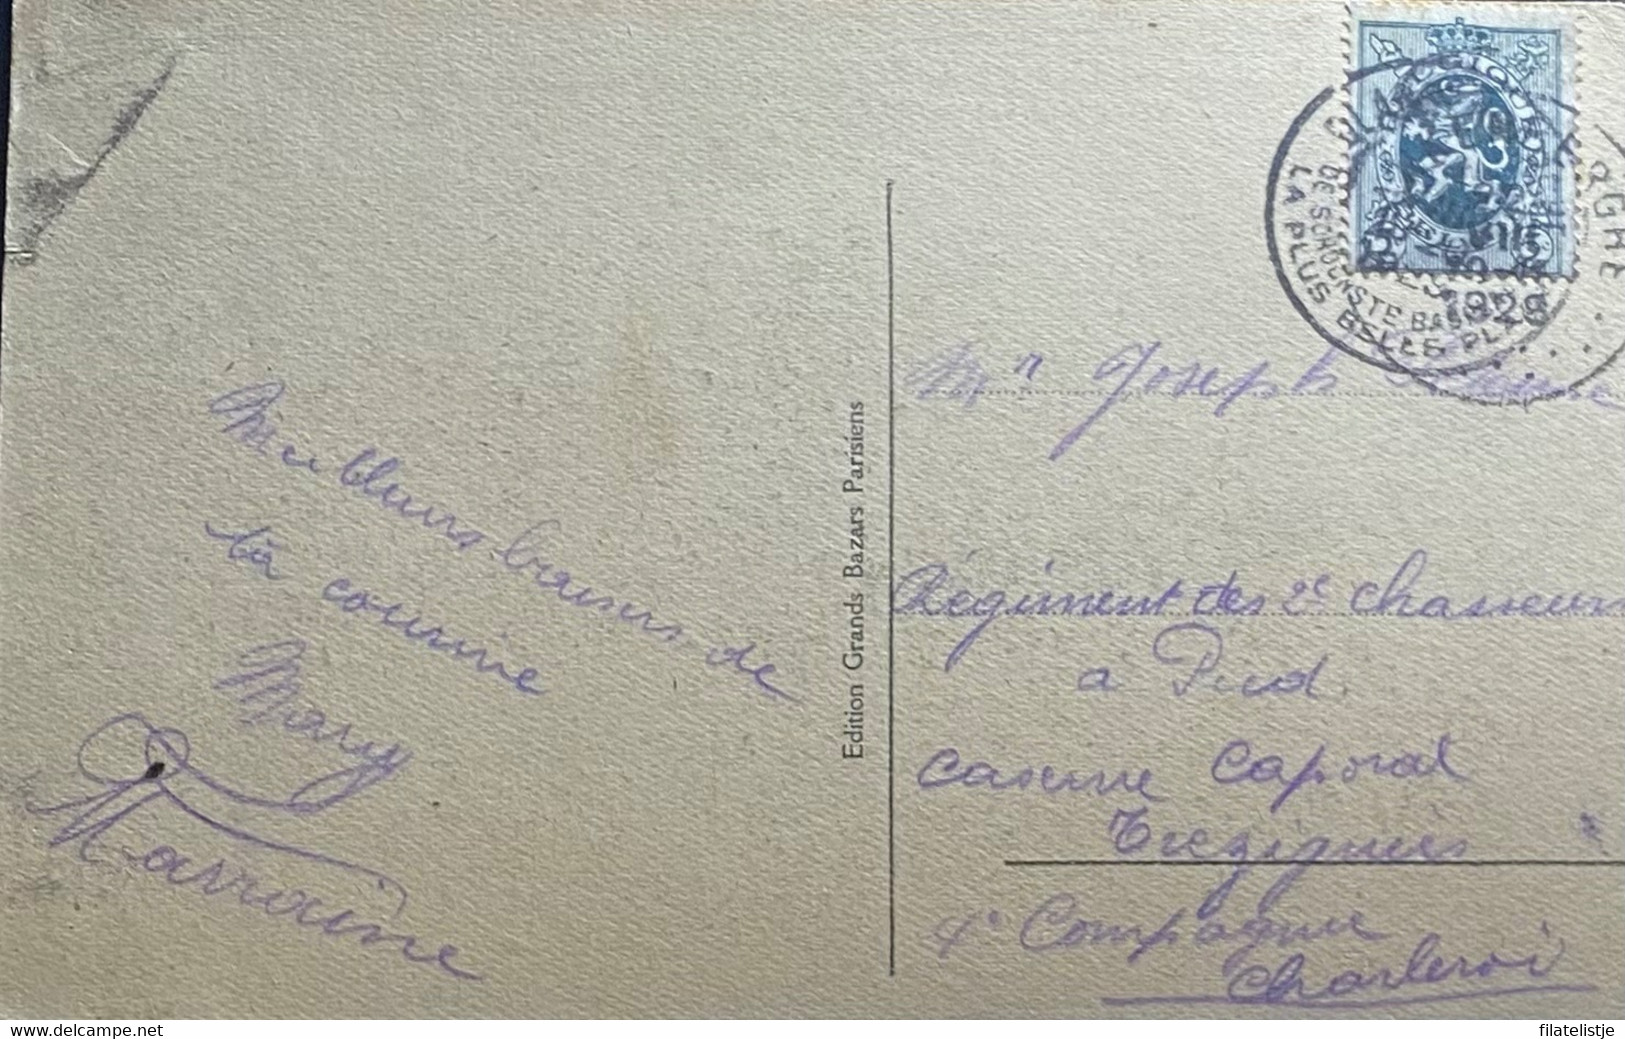 Meilleurs baisers de
ta cousine
Mary
Marraine
Edition Grands Bazars Parisiens
DE SCHOONSTE BAD
LA PLUS BELLE PL
1929
Mr Joseph
Régiment des 2e chasseurs
a Pied
Caserne Caporal
Trezignies
4e Compagnie
Charleroi
filatelistje